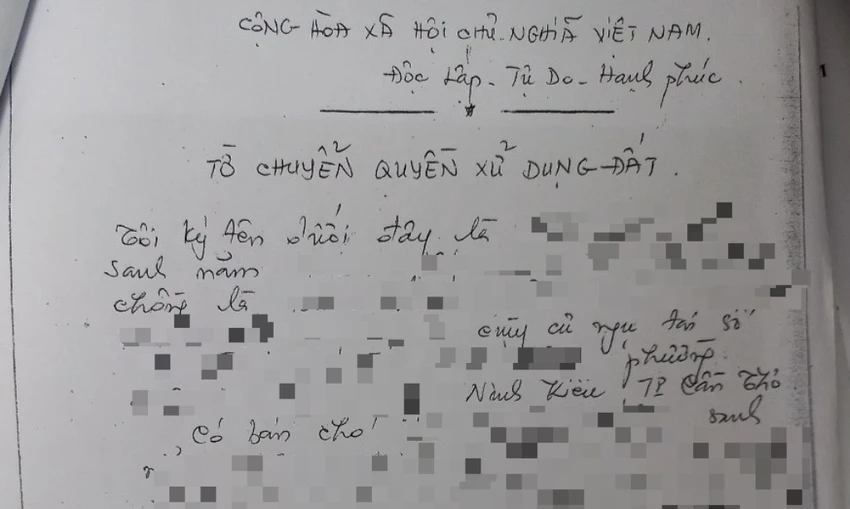 CỘNG HÒA XÃ HỘI CHỦ NGHĨÃ VIỆT NAM.
Độc Lập - Tự Do - Hạnh phúc.
TỜ CHUYỂN QUYỀN XỬ DỤNG ĐẤT.
Tôi ký tên dưới đây là
sanh năm
chồng là
cùng cư ngụ tại số
phường
Ninh Kiều TP Cần Thơ
sanh
, có bán cho
1